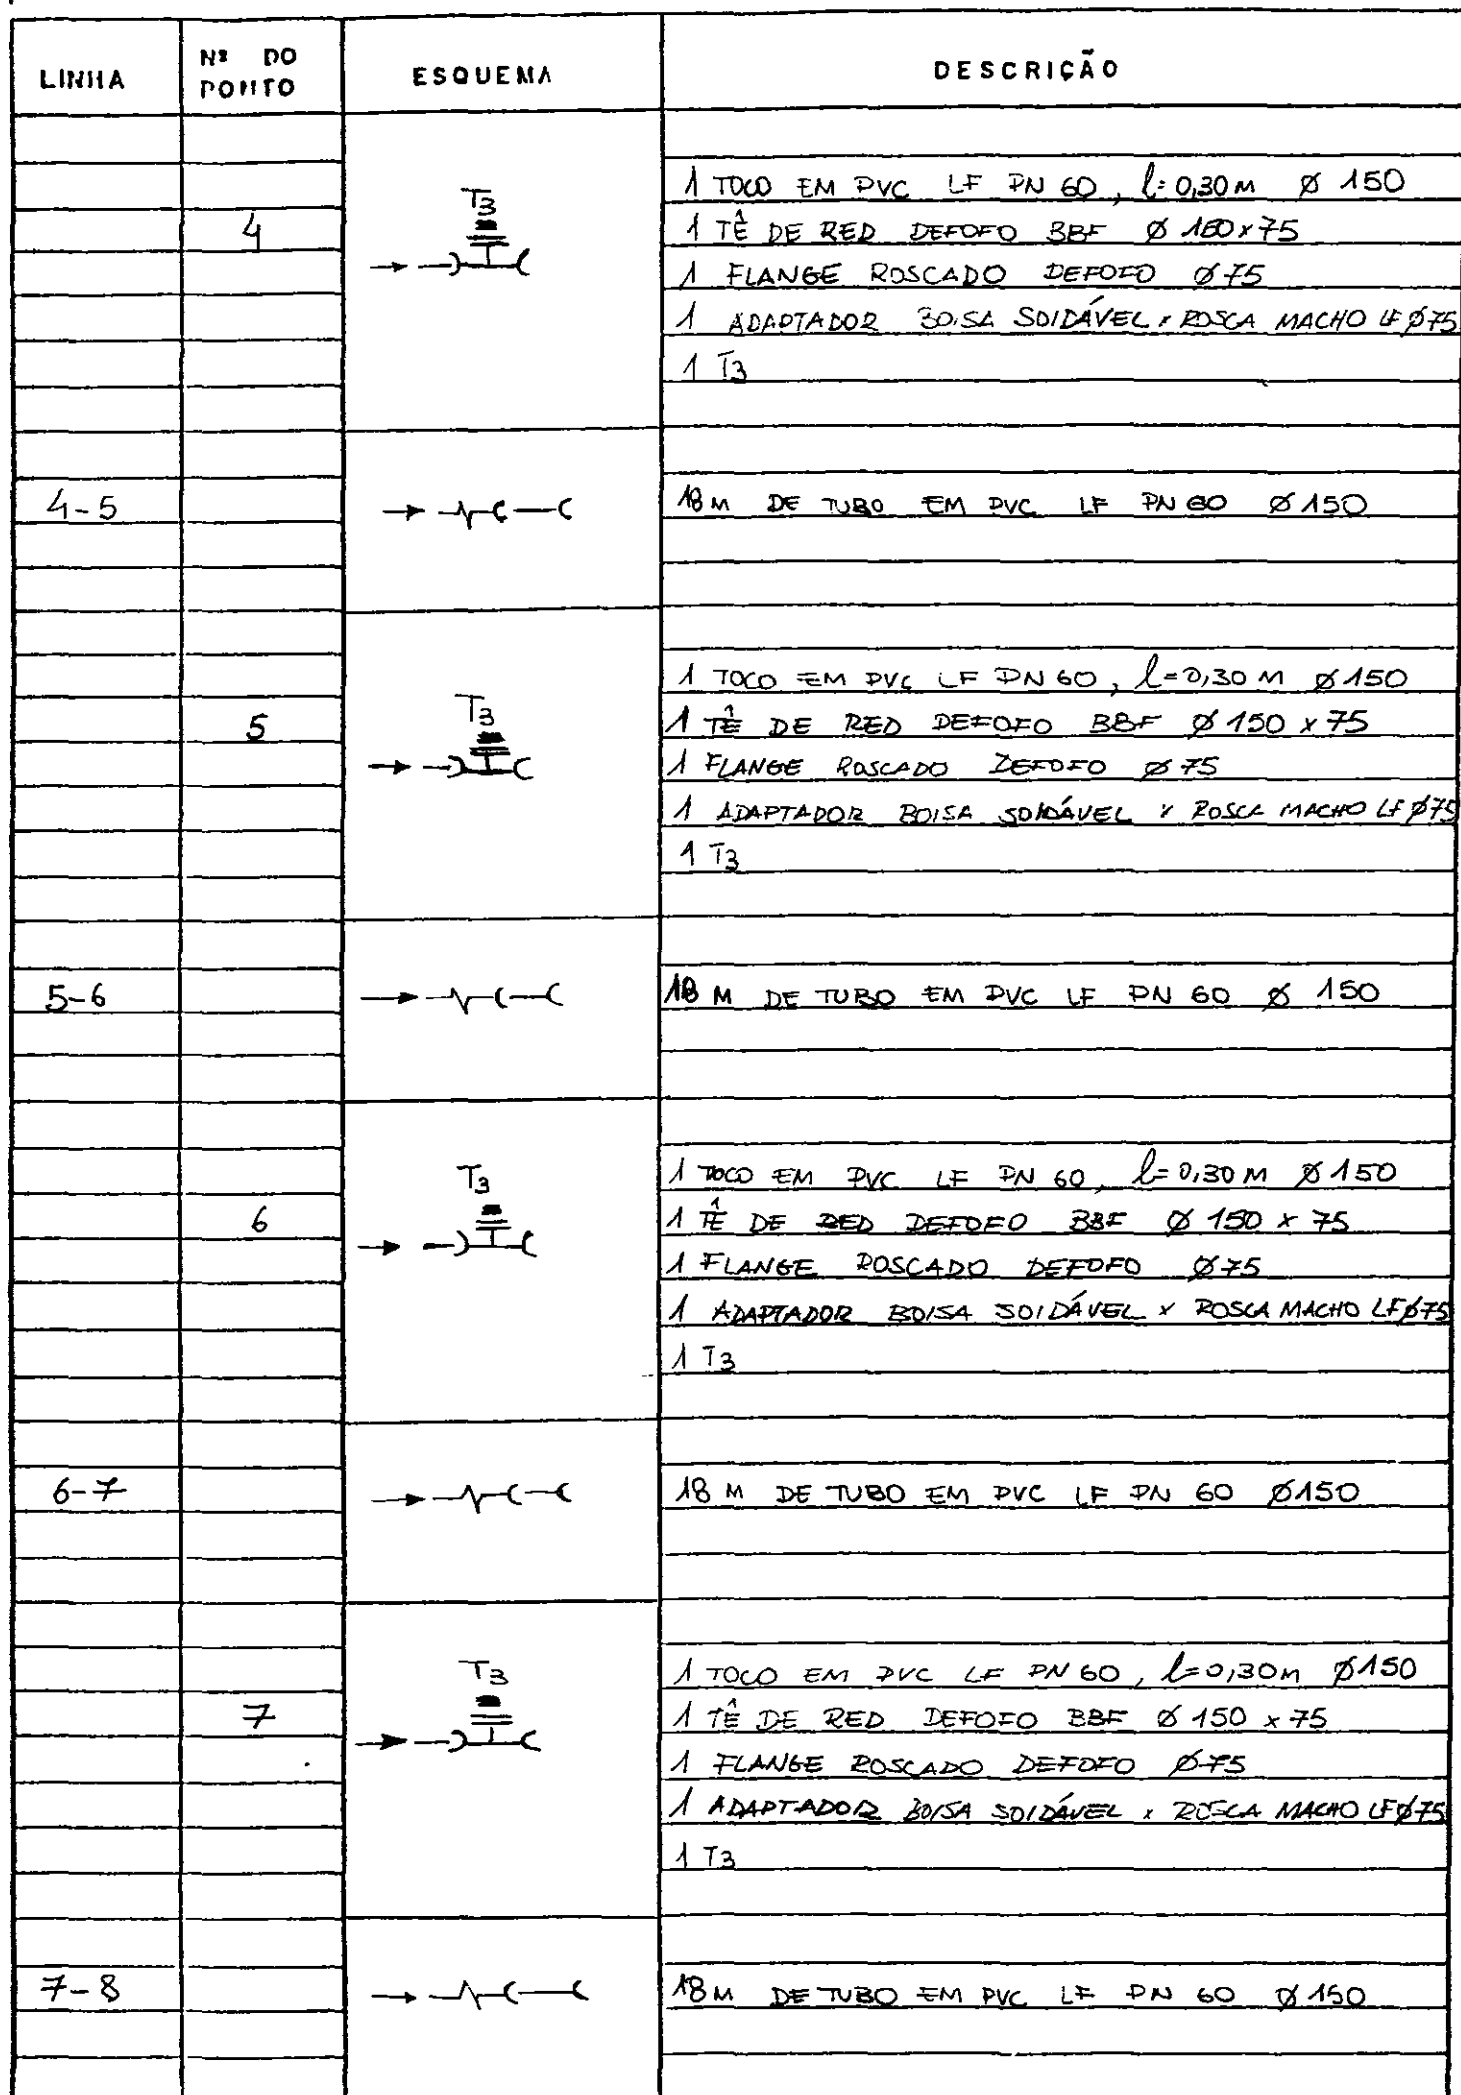 LINHA Nº DO PONTO ESQUEMA DESCRIÇÃO
T3
4
1 TOCO EM PVC LF PN 60, l=0,30 M Ø 150
1 TÊ DE RED DEFOFO BBF Ø 150 x 75
1 FLANGE ROSCADO DEFOFO Ø 75
1 ADAPTADOR BOLSA SOLDÁVEL x ROSCA MACHO LF Ø75
1 T3
4-5 18 M DE TUBO EM PVC LF PN 60 Ø 150
T3
5
1 TOCO EM PVC LF PN 60, l=0,30 M Ø 150
1 TÊ DE RED DEFOFO BBF Ø 150 x 75
1 FLANGE ROSCADO DEFOFO Ø 75
1 ADAPTADOR BOLSA SOLDÁVEL x ROSCA MACHO LF Ø75
1 T3
5-6 18 M DE TUBO EM PVC LF PN 60 Ø 150
T3
6
1 TOCO EM PVC LF PN 60, l=0,30 M Ø 150
1 TÊ DE RED DEFOFO BBF Ø 150 x 75
1 FLANGE ROSCADO DEFOFO Ø 75
1 ADAPTADOR BOLSA SOLDÁVEL x ROSCA MACHO LF Ø75
1 T3
6-7 18 M DE TUBO EM PVC LF PN 60 Ø 150
T3
7
1 TOCO EM PVC LF PN 60, l=0,30 m Ø 150
1 TÊ DE RED DEFOFO BBF Ø 150 x 75
1 FLANGE ROSCADO DEFOFO Ø 75
1 ADAPTADOR BOLSA SOLDÁVEL x ROSCA MACHO LF Ø75
1 T3
7-8 18 M DE TUBO EM PVC LF PN 60 Ø 150